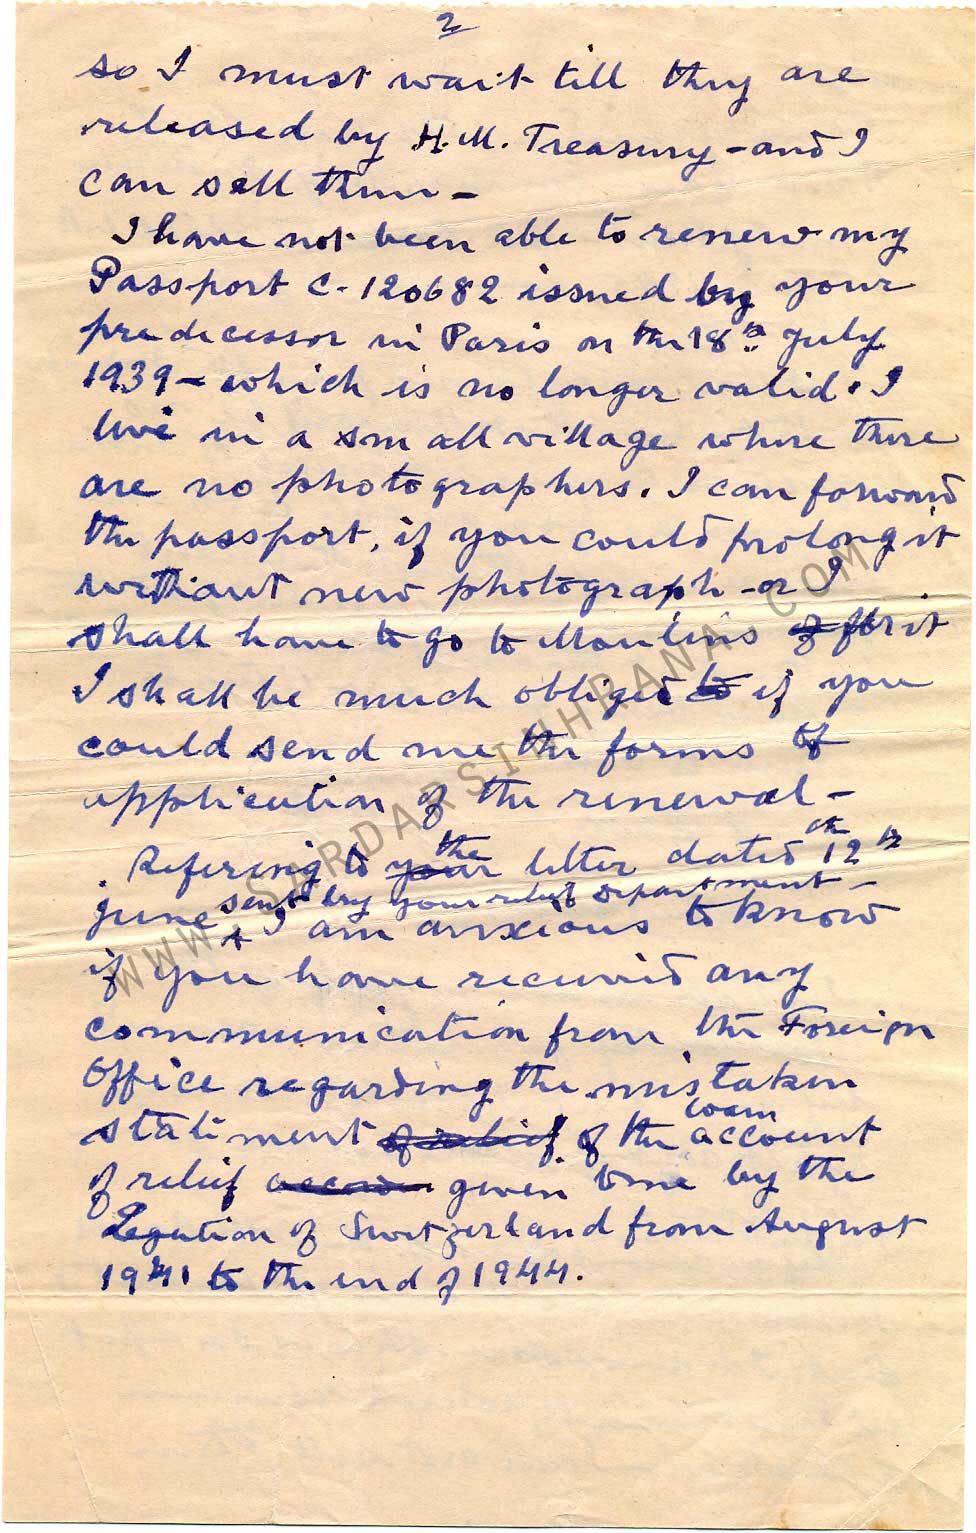 2
so I must wait till they are
released by H.M. Treasury - and I
can sell them -
I have not been able to renew my
Passport C-120682 issued by your
predecessor in Paris on the 18th July
1939 - which is no longer valid. I
live in a small village where there
are no photographers. I can forward
the passport, if you could prolong it
without new photograph - or I
shall have to go to Moulins of for it
I shall be much obliged to if you
could send me the forms of
application of the renewal -
Refering to your the letter dated on 12th
June sent by your relief department -
I am anxious to know
if you have received any
communication from the Foreign
Office regarding the mistaken
statement of relief of the loan account
of relief given to me by the
Legation of Switzerland from August
1941 to the end of 1944.
WWW.SARDARSINHRANA.COM